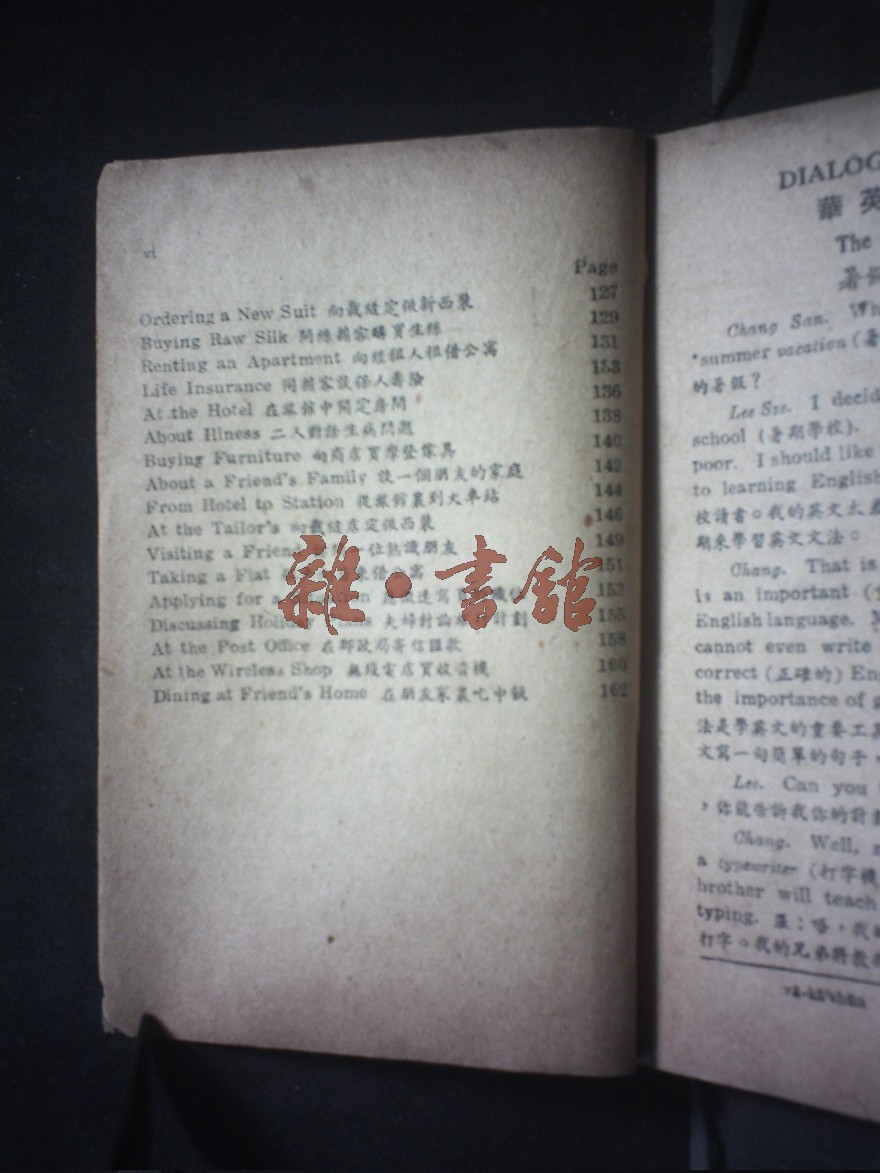 vi
Page
Ordering a New Suit 向裁縫定做新西裝 127
Buying Raw Silk 問絲掮客購買生絲 129
Renting an Apartment 向經租人租借公寓 131
Life Insurance 同掮客談保人壽險 133
At the Hotel 在旅館中開定房間 136
About Illness 二人對話生病問題 138
Buying Furniture 向商店買摩登傢具 140
About a Friend's Family 談一個朋友的家庭 142
From Hotel to Station 從旅館裏到火車站 144
At the Tailor's 向裁縫店定做西裝 146
Visiting a Friend 一位熟識朋友 149
Taking a Flat 借公寓 151
Applying for a 152
Discussing Holiday 夫婦討論 計劃 155
At the Post Office 在郵政局寄信匯款 158
At the Wireless Shop 無綫電店買收音機 160
Dining at Friend's Home 在朋友家裏吃中飯 162
雜·書館
DIALOG
華英
The
暑假
Chang San. Wh
*summer vacation (暑
的暑假？
Lee Sze. I decid
school (暑期學校).
poor. I should like
to learning English
校讀書。我的英文太差
期來學習英文文法。
Chang. That is
is an important
English language.
cannot even write
correct (正確的) Eng
the importance of g
法是學英文的重要工具
文寫一句簡單的句子，
Lee. Can you
，你能告訴我你的計劃
Chang. Well,
a typewriter (打字機
brother will teach
typing. 我的
打字。我的兄弟將教我